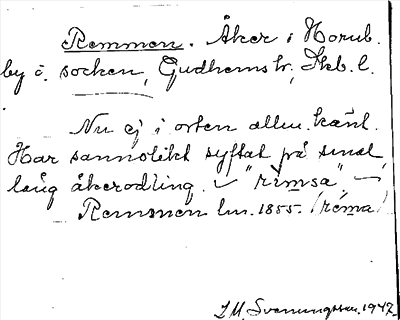 Remmen. Åker i Hornb.
by o. socken, Gudhems hr, Skb. l.
Nu ej i orten allm. känt.
Har sannolikt syftat på smal,
lång åkerodling. "rimsa".
Remmen lm. 1855. (réma)
I.M. Svenungsson. 1947.